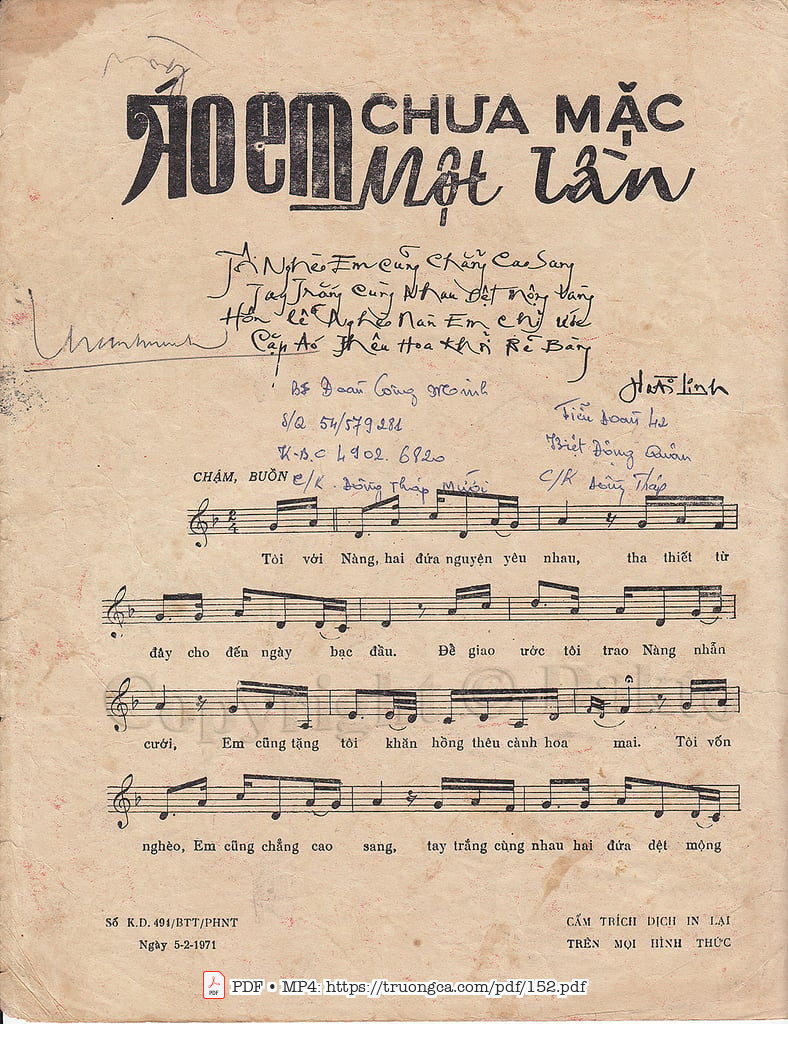 ÁO EM CHƯA MẶC
Một Lần
Tôi Nghèo Em Cũng Chẳng Cao Sang
Tay Trắng Cùng Nhau Dệt Mộng Vàng
Hôn lễ Nghèo Nàn Em Chỉ Ước
Cặp Áo Thêu Hoa Khỏi Bẽ Bàng
Hoài Linh
BS Đoàn Công Minh
S/Q 54/579281
Tiểu Đoàn 42
K.B.C 4902. 6820
Biệt Động Quân
CHẬM, BUỒN
C/K Đồng Tháp Mười
C/K Đồng Tháp
2
4
Tôi với Nàng, hai đứa nguyện yêu nhau, tha thiết từ
đây cho đến ngày bạc đầu. Để giao ước tôi trao Nàng nhẫn
Copyright ©
cưới, Em cũng tặng tôi khăn hồng thêu cành hoa mai. Tôi vốn
nghèo, Em cũng chẳng cao sang, tay trắng cùng nhau hai đứa dệt mộng
Số K.D. 491/BTT/PHNT
Ngày 5-2-1971
CẤM TRÍCH DỊCH IN LẠI
TRÊN MỌI HÌNH THỨC
PDF
PDF • MP4: https://truongca.com/pdf/152.pdf